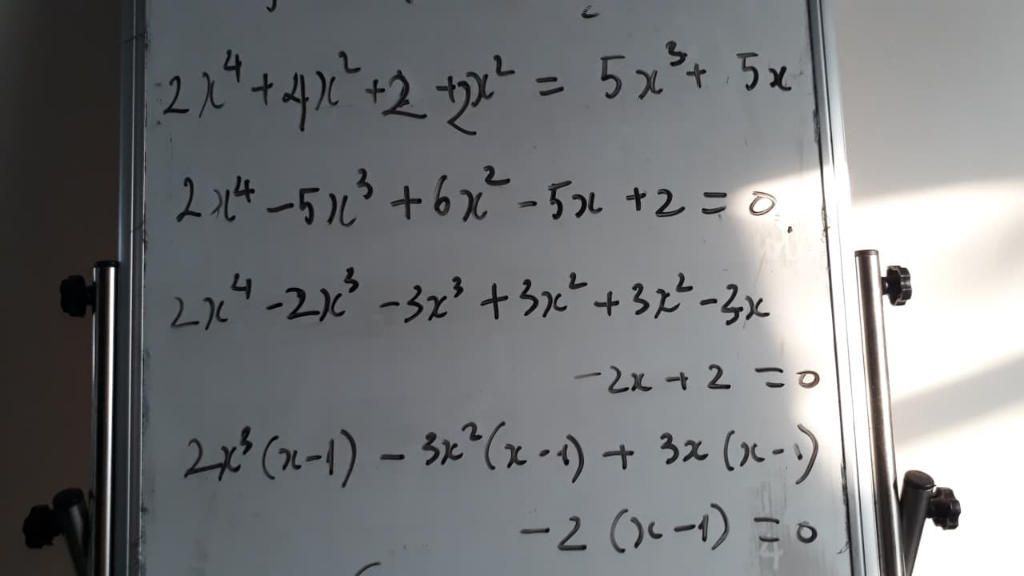 2x⁴ + 4x² + 2 + 2x² = 5x³ + 5x
2x⁴ - 5x³ + 6x² - 5x + 2 = 0
2x⁴ - 2x³ - 3x³ + 3x² + 3x² - 3x
- 2x + 2 = 0
2x³ (x-1) - 3x² (x-1) + 3x (x-1)
- 2 (x-1) = 0